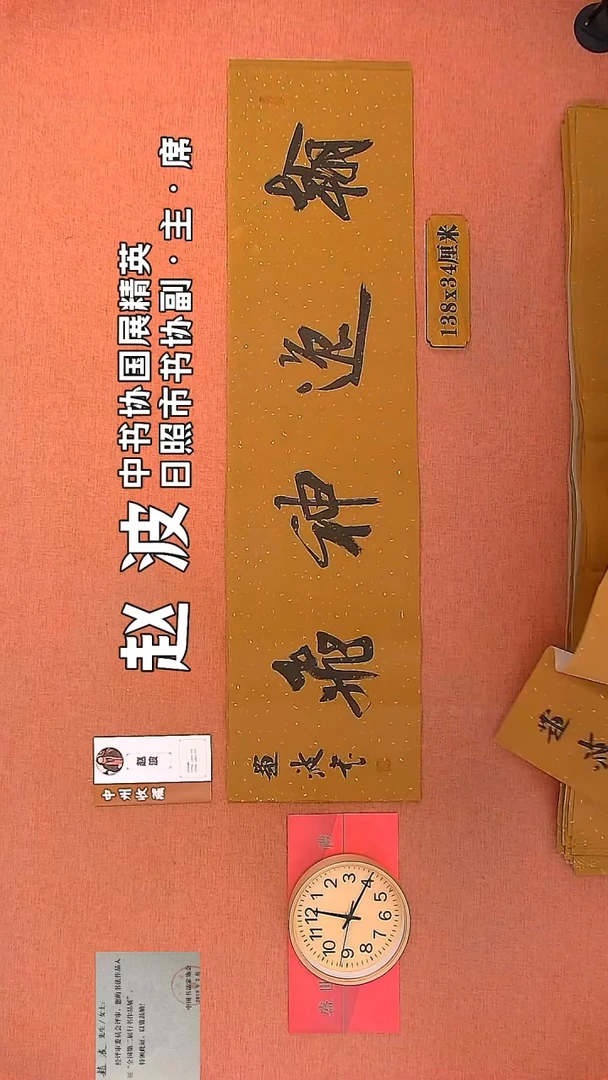 赵波
中书协国展精英
日照市书协副·主·席
翰逸神飛
趙波书
138x34厘米
赵波
中州收藏
12
1
2
3
4
5
6
7
8
9
10
11
先生/女士:
经评审委员会评审,您的书法作品入
展“全国第二届行书作品展”,
特颁此证,以资鼓励!
中国书法家协会